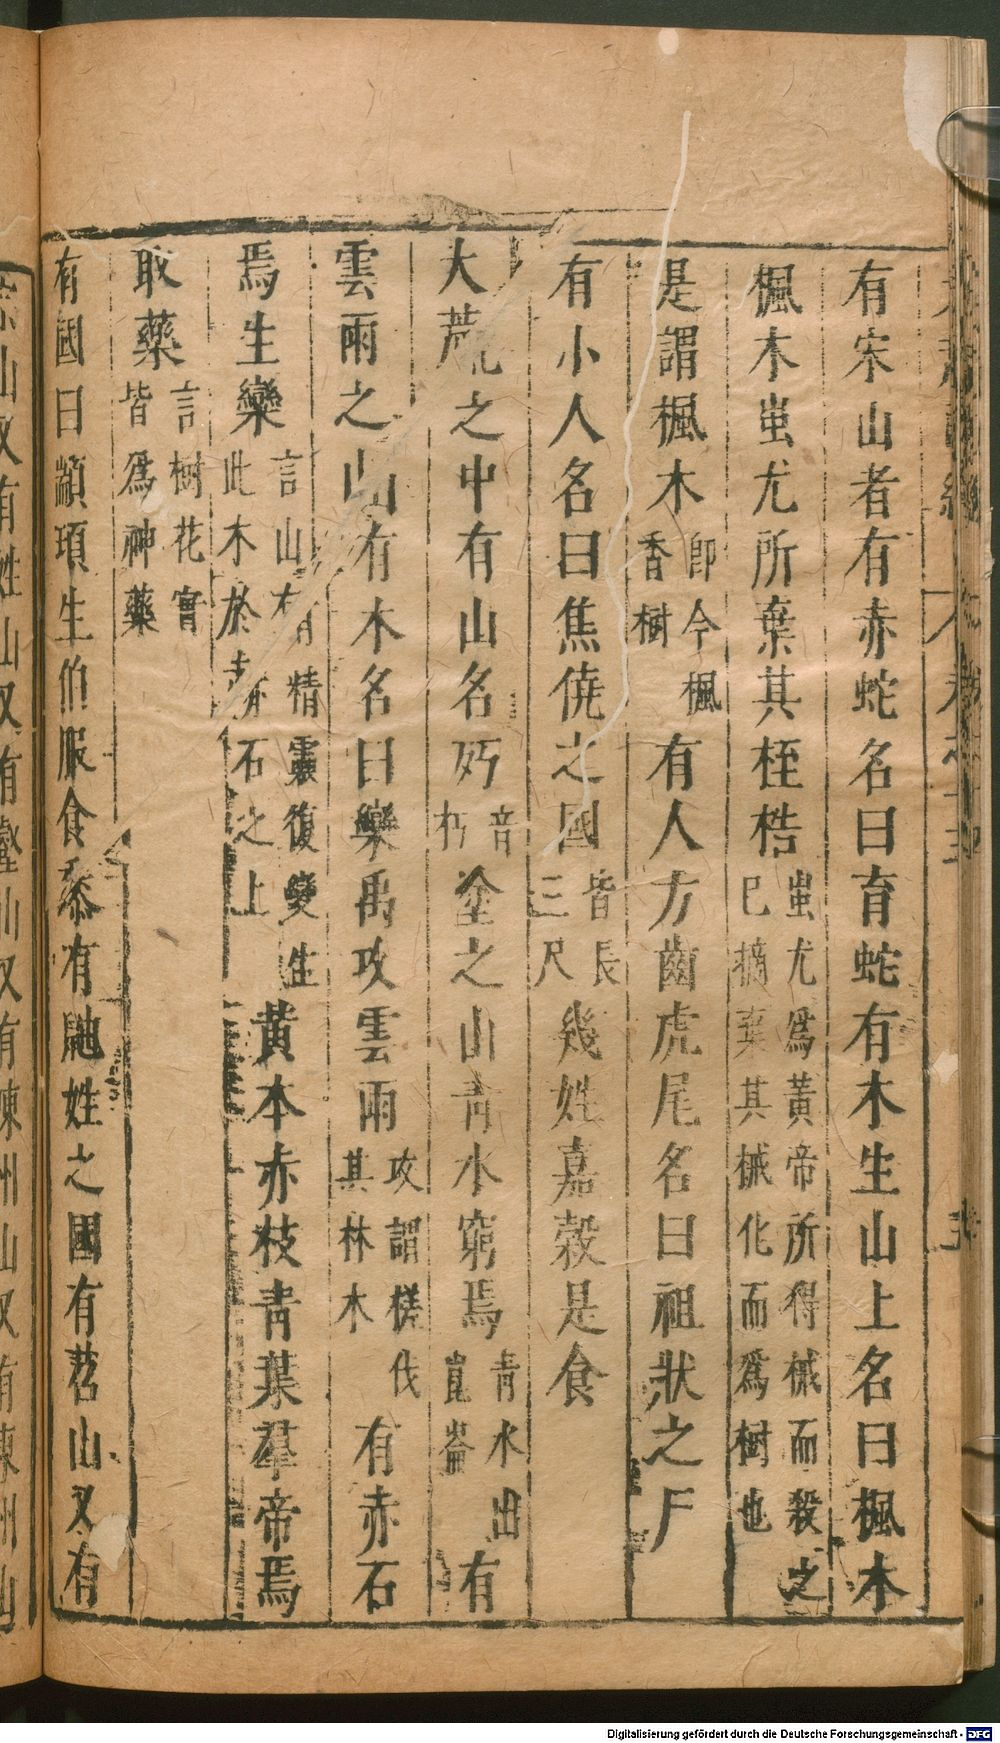 有宋山者有赤蛇名曰育蛇有木生山上名曰楓木
楓木蚩尤所葉其桎梏蚩尤爲黃帝所得械而殺之已摘棄其械化而爲樹也
是謂楓木卽今楓香樹有人方齒虎尾名曰祖狀之尸
有小人名曰焦僥之國皆長三尺幾姓嘉穀是食
大荒之中有山名㱙音朽塗之山靑水窮焉靑水出崑崙有
雲雨之山有木名曰欒禹攻雲雨攻謂槎伐其林木有赤石
焉生欒言山有精靈復變生此木於赤石之上黃本赤枝靑葉羣帝焉
取藥言樹花實皆爲神藥
有國曰顓頊生伯服食黍有鼬姓之國有苕山又有
宗山又有姓山又有壑山又有陳州山又有東州山
Digitalisierung gefördert durch die Deutsche Forschungsgemeinschaft - DFG